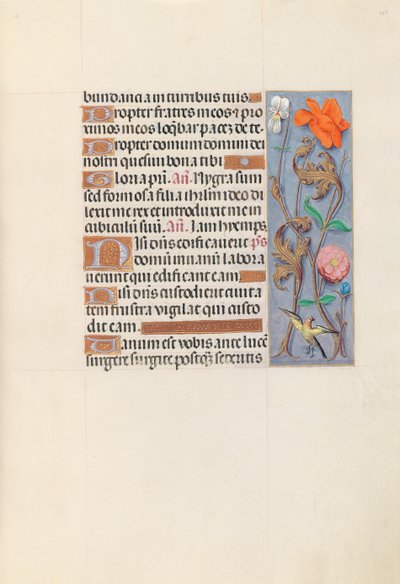 bundancia in turribus tuis
Propter fratres meos et pro
ximos meos loq̄bar pacē de te.
Propter domum domini dei
nostri quesiui bona tibi
Gloria pr̄i. An̄. Nygra sum
sed formosa filia ihrlm̄ ideo di
lexit me rex et introduxit me in
cubiculū suū. An̄. Iam hyemps. p̄s
Nisi dn̄s edificauerit
domū in uanū labora
uerunt qui edificant eam
Nisi dn̄s custodierit ciuita
tem frustra vigilat qui custo
dit eam.
Uanum est vobis ante lucē
surgere surgite postq̄ sederitis